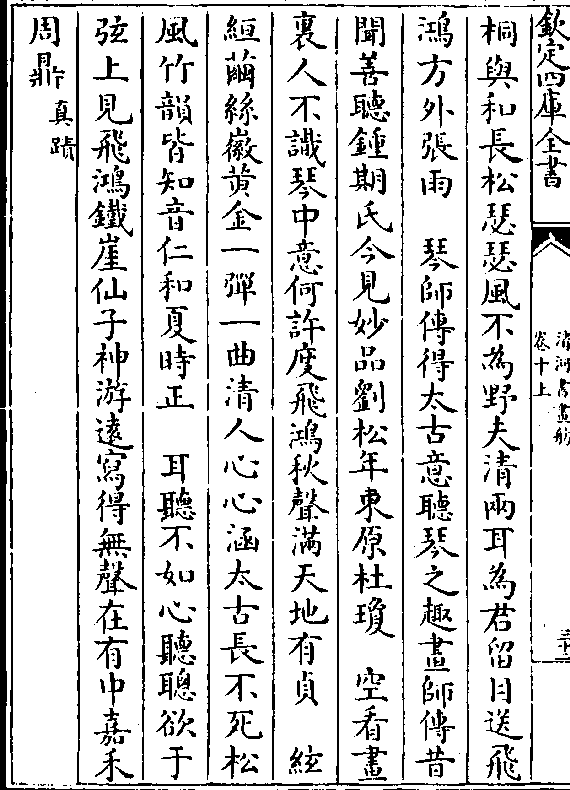 欽定四庫全書
清河書畫舫
卷十上
三十
桐與和長松瑟瑟風不為野夫清兩耳為君留目送飛
鴻方外張雨　琴師傳得太古意聽琴之趣畫師傳昔
聞善聽鍾期氏今見妙品劉松年東原杜瓊　空看畫
裏人不識琴中意何許度飛鴻秋聲滿天地有貞　絃
絙繭絲徽黃金一彈一曲清人心心涵太古長不死松
風竹韻皆知音仁和夏時正　耳聽不如心聽聰欲于
弦上見飛鴻鐵崖仙子神游遠寫得無聲在有中嘉禾
周鼎真蹟